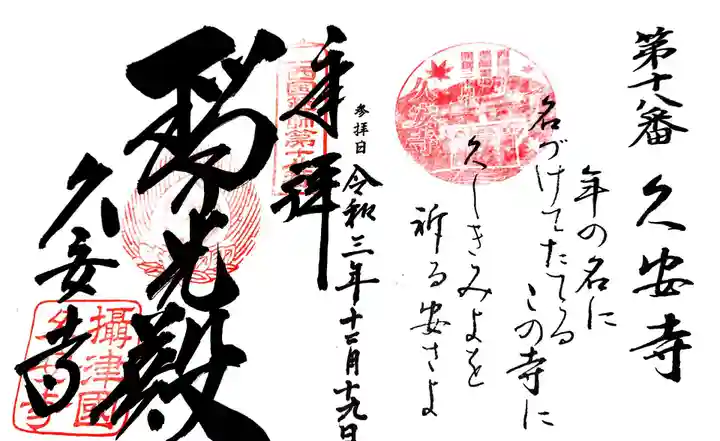 第十八番 久安寺
年の名に
名づけてたてる
この寺に
久しきみよを
祈る安さよ
久安寺
奉拝
参拝日 令和三年十二月十九日
瑠璃光殿
久安寺
攝津國
久安寺